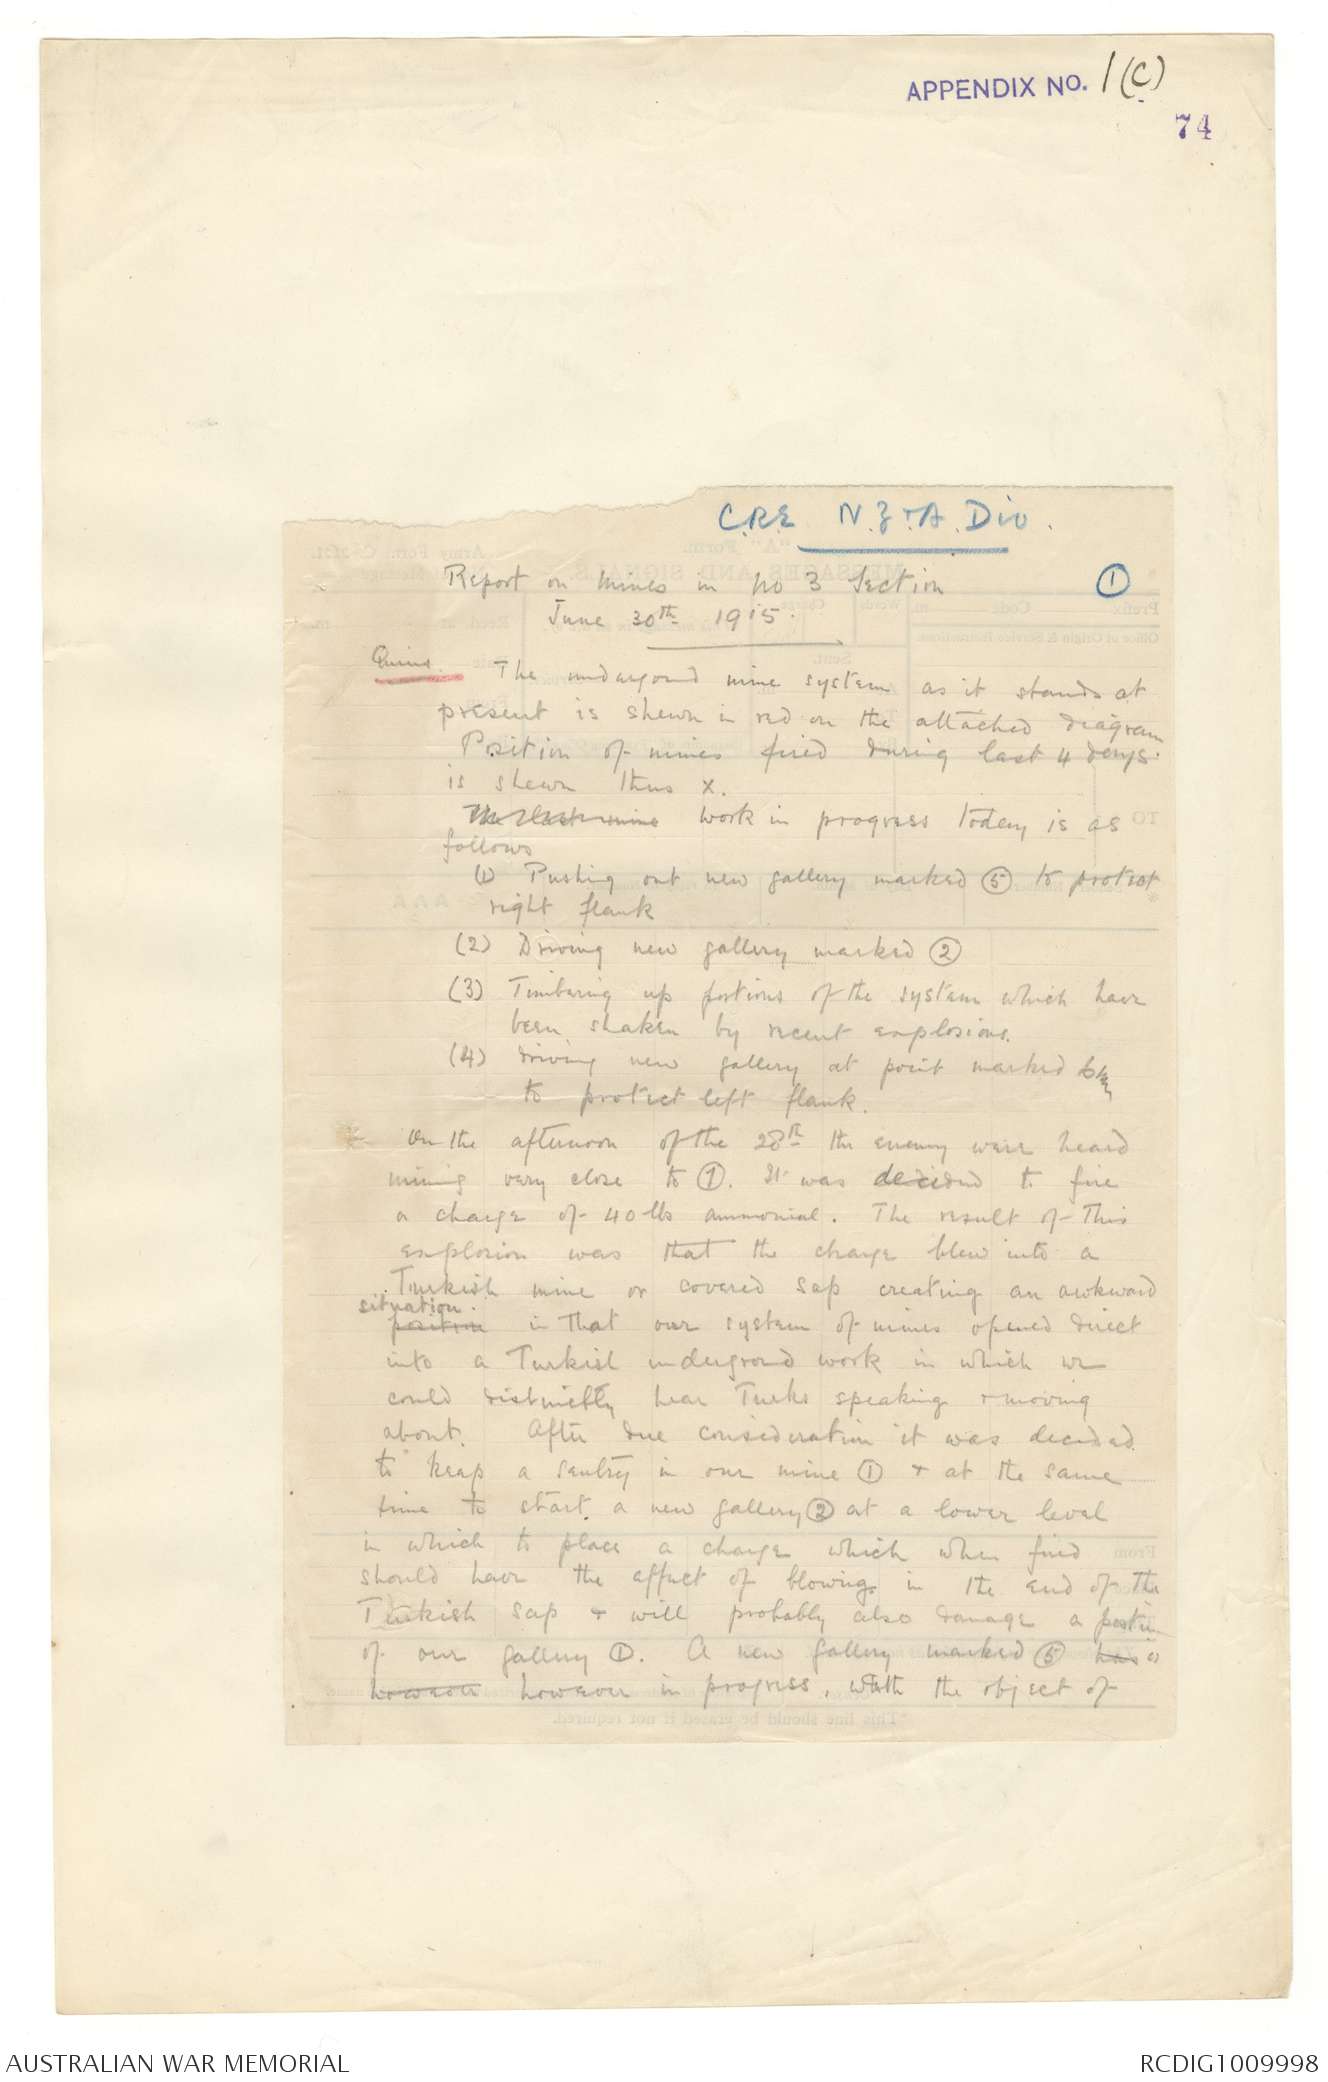 APPENDIX NO. 1(C)
74
C.R.E N.Z. & A. Div.
Report on mines in No 3 Section
①
June 30th 1915.
Quins.
The undergound mine system as it stands at
present is shewn in red on the attached diagram
Position of mines fired during last 4 days.
is shewn thus x.
The last mine work in progress today is as
follows
(1) Pushing out new gallery marked ⑤ to protect
right flank
(2) Driving new gallery marked ②
(3) Timbering up portions of the system which have
been shaken by recent explosions.
(4) driving new gallery at point marked
to protect left flank.
On the afternoon of the 28th the enemy were heard
mining very close to ①. It was decided to fire
a charge of 40 lbs ammonial. The result of this
explosion was that the charge blew into a
Turkish mine or covered sap creating an awkward
situation.
position in that our system of mines opened direct
into a Turkish underground work in which we
could distinctly hear Turks speaking & moving
about. After due consideration it was decided
to keep a sentry in our mine ① & at the same
time to start a new gallery ② at a lower level
in which to place a charge which when fired
should have the affect of blowing in the end of the
Turkish sap & will probably also damage a portion
of our gallery ①. A new gallery marked ⑤ has is
however however in progress, with the object of
This line should be erased if not required.
AUSTRALIAN WAR MEMORIAL
RCDIG1009998